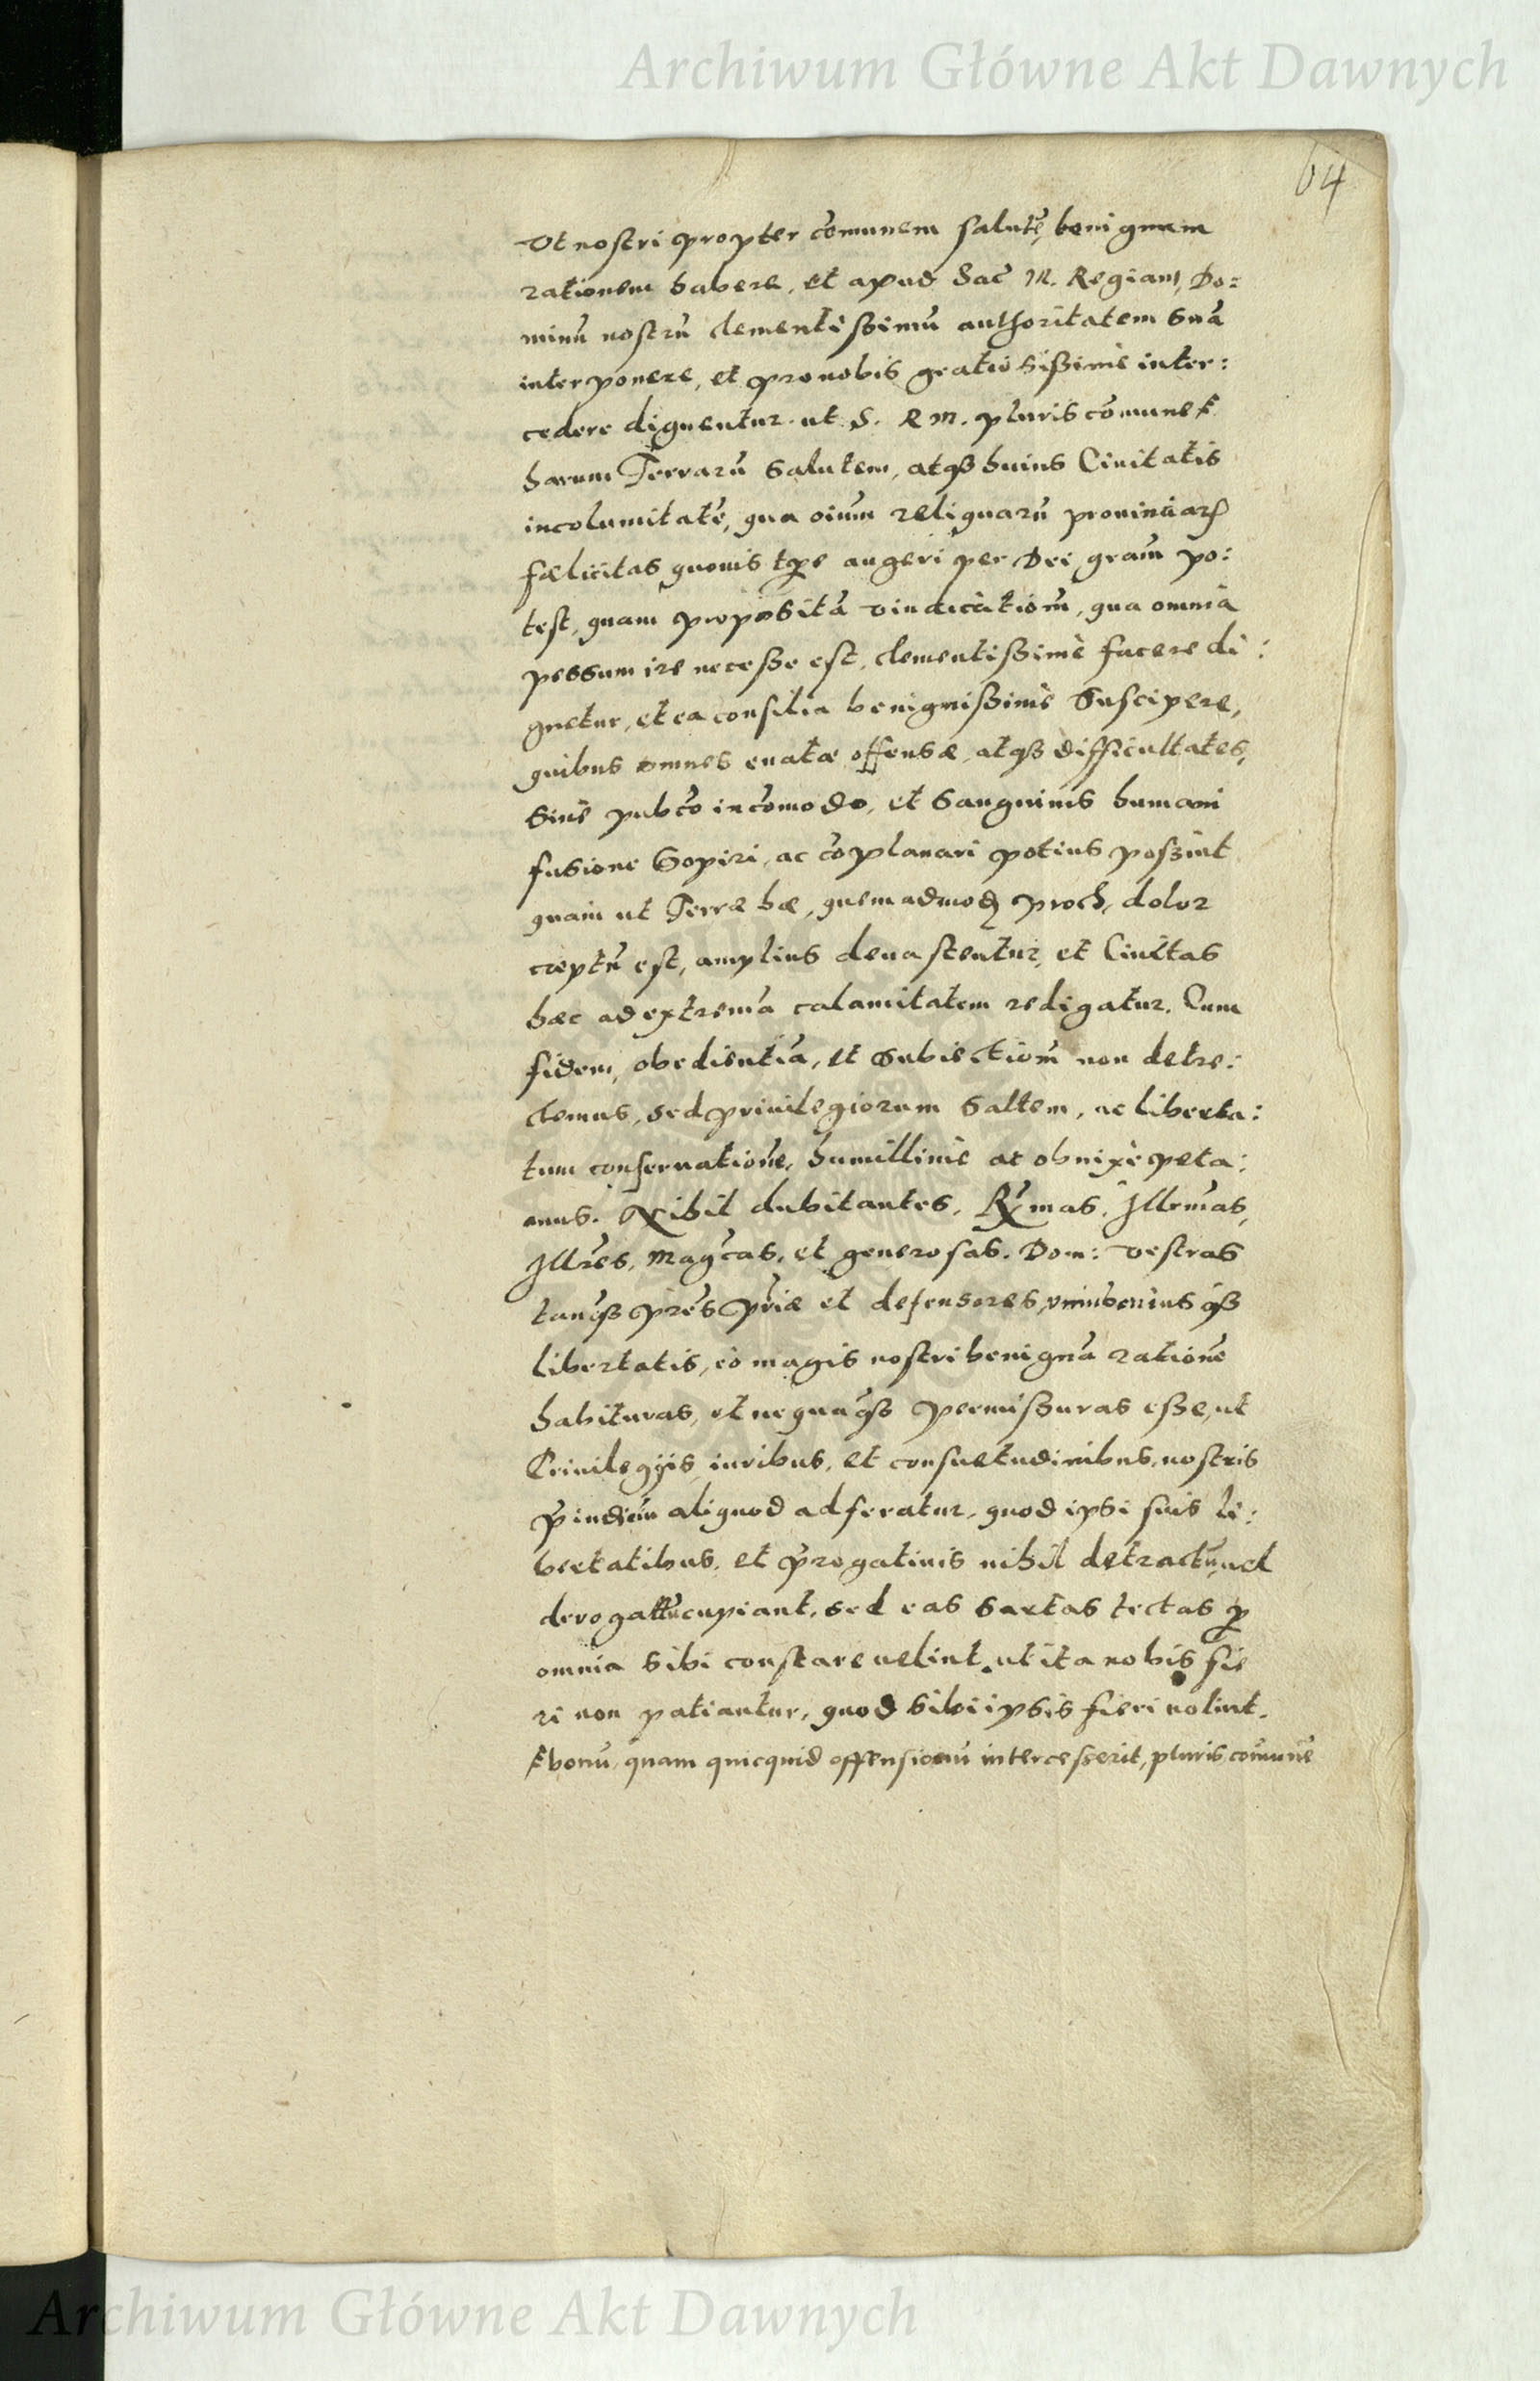 Archiwum Główne Akt Dawnych
64
Vt nostri propter cōmunem salutē, benignam
rationem habere, et apud Sac̄ M. Regiam, Do:
minū nostrū clementissimū authoritatem suā
interponere, et pro nobis gratiosissimè inter:
cedere dignentur. ut S. R M. pluris cōmunē
harum Terrarū salutem, atq₃ huius Ciuitatis
incolumitatē, qua oīum reliquarū prouinciarꝝ
fælicitas quouis tp̄e augeri per Dei grām po:
test, quam propositā vindicatiom̄, qua omnia
pessum ire necesse est, clementissimè facere di:
gnetur, et ea consilia benignissimè suscipere,
quibus omnes enatæ offensæ, atq₃ difficultates,
sinè pubco incōmodo, et sanguinis humani
fusione sopiri, ac cōplanari potius possint
quam ut Terræ hæ, quemadmodꝫ proch, dolor
cæptū est, amplius deuastentur, et Ciuitas
hæc ad extremā calamitatem redigatur. Cum
fidem, obedientiā, et subiectiom̄ non detre:
ctemus, sed priuilegiorum saltem, ac liberta:
tum conseruationē, humillimè ac obnixè peta:
mus. Nihil dubitantes, Rm̄as, Illrm̄as,
Illr̄es, Mag̃cas, et generosas. Dom: vestras
tanq₃ pr̄es pr̄iæ et defensores, q₃
libertatis, eò magis nostri benignā rationē
habituras, et nequaq₃ permissuras esse, ut
Priuilegijs, iuribus, et consuetudinibus, nostris
p̄iudicīū aliquod adferatur, quod ipsi suis li:
bertatibus, et p̄rogatiuis nihil detractū, uel
derogatū cupiant, sed eas sartas tectas ꝑ
omnia sibi constare uelint, ut ita nobis fie
ri non patiantur, quod sibi ipsis fieri nolint.
bonū, quam quicquid offensionū intercesserit, pluris comunē
Archiwum Główne Akt Dawnych